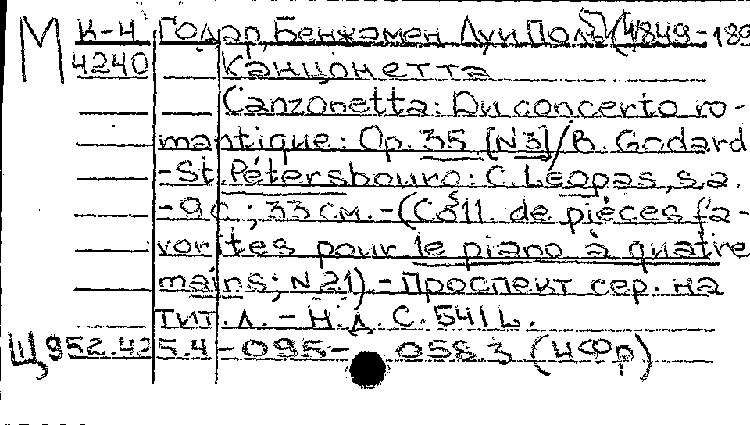 М К-4 Годар, Бенжамен Луи Поль (1849-189
4240 Канцонетта
Canzonetta: Du concerto ro-
mantique: Op. 35 [N3] / B. Godard
-St. Pétersbourg: C. Leopas, s.a.
-9 с.; 33 см. -(Coll. de pièces fa-
vorites pour le piano à quatre
mains; N 21) - Проспект сер. на
тит. л. - Н.д. C. 541 L.
Щ 952.425.4-095- 058 3 (ЧФр)